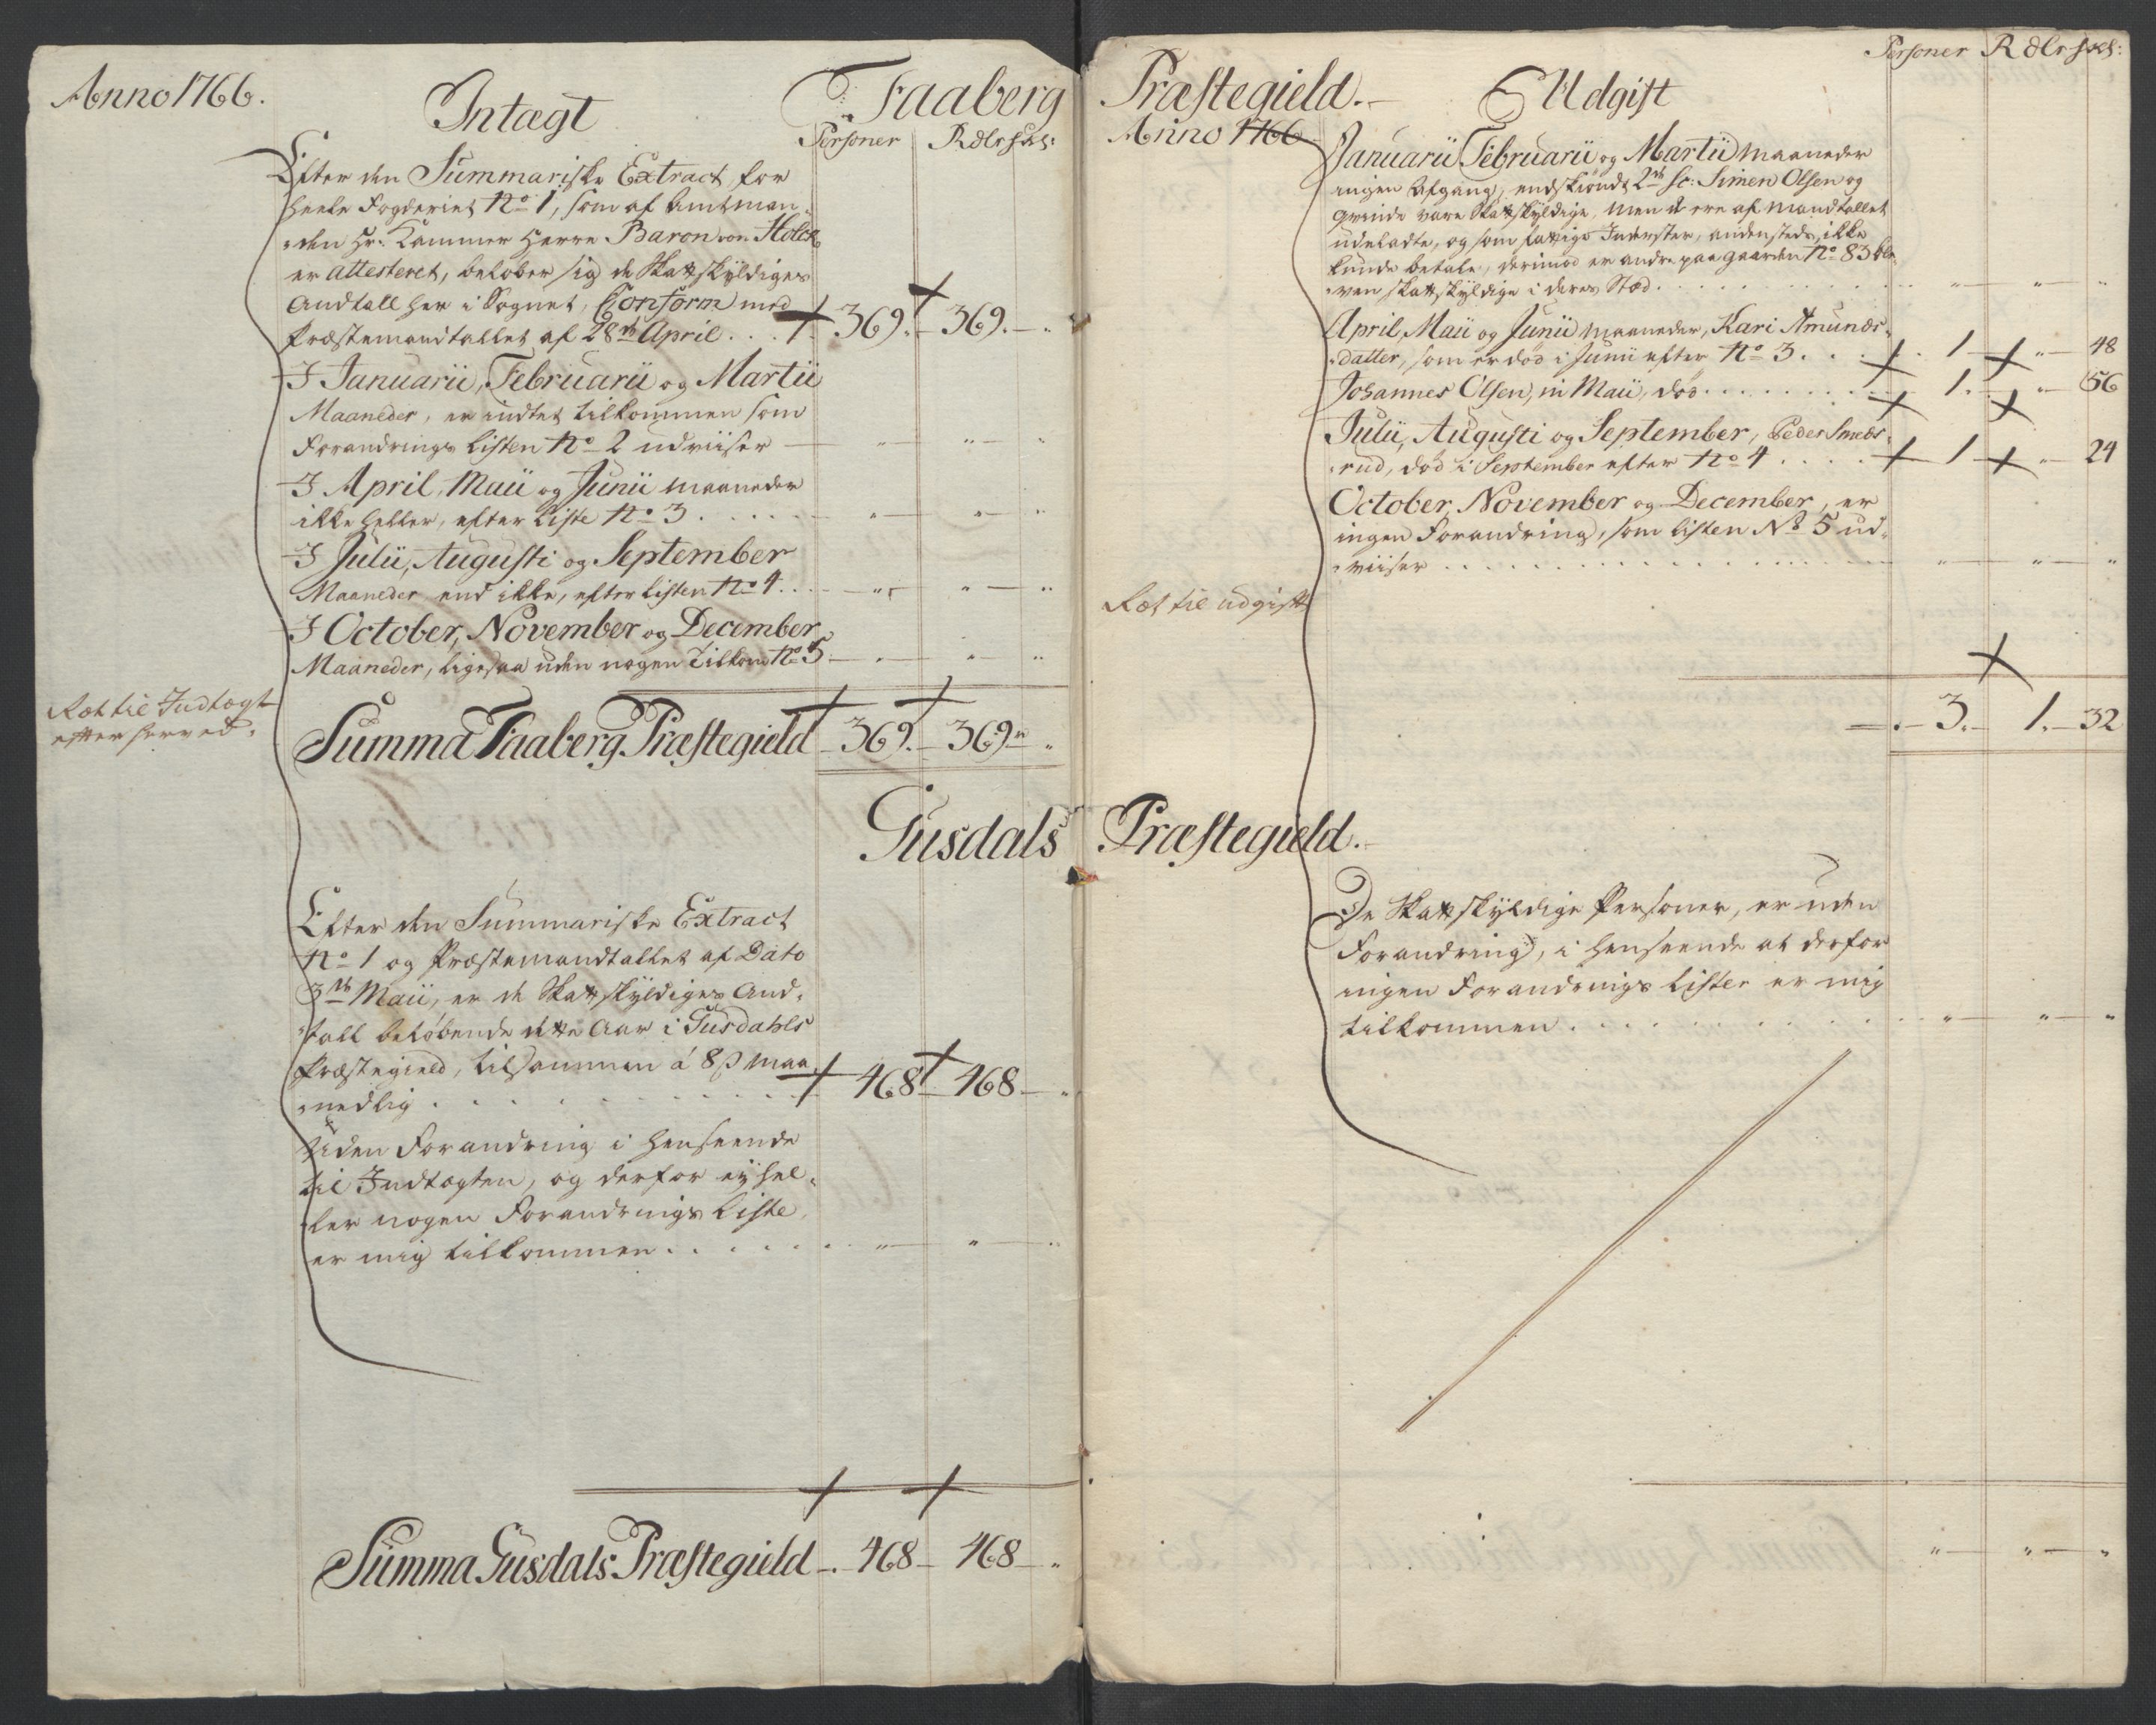 Anno 1766.
Intægt
Faaberg
Personer Rdlr sk:
Efter den Summariske Extract for
heele Fogderiet No 1, som af Amtman-
den Hr. Kammer Herre Baron von Holck
er attesteret, beløber sig de Skattskyldiges
Andtall her i Sognet, Conform med
Præstemandtallet af 28de April . . . 369. 369. "
I Januarii, Februarii og Martii
Maaneder, er indtet tilkommen som
Forandrings Listen No 2 udviiser " " "
I April, Maii og Junii maaneder
ikke heller, efter Liste No 3 . . . . . " " "
I Julii, Augusti og September
Maaneder end ikke, efter Listen No 4 . . . " " "
I October, November og December
Maaneder, ligesaa uden nogen Tilkom No 5 " " "
Ræt til Indtægt
efter
Summa Faaberg Præstegield 369. 369 "
Gusdals
Efter den Summariske Extract
No 1 og Præstemandtallet af Dato
3de Maii, er de Skattskyldiges And-
tall beløbende dette Aar i Gusdahls
Præstegield, tilsammen á 8 s maa-
nedlig . . . . . . . . . 468 468 "
Uden Forandring i henseende
til Indtægten, og derfor ej hel-
ler nogen Forandrings Liste,
er mig tilkommen . . . . . . " " "
Summa Gusdals Præstegield 468 468 "
Præstegield.
Udgift
Personer Rdlr sk:
Anno 1766
Januarii Februarii og Martii Maaneder
ingen Afgang, endskiøndt 2de sc: Simen Olsen og
Qvinde vare Skattskyldige, men de ere af Mandtallet
udeladte, og som fattige Inderster, andensteds, ikke
kunde betale, derimod er andre paa Gaarden No 83 ble-
ven skattskyldige i deres Stæd . . . . . . " " "
April, Maii og Junii Maaneder, Kari Amunds-
datter, som er død i Junii efter No 3. . . . 1 " 48
Johannes Olsen, in Maii, død . . . . . . 1. " 56
Julii, Augusti og September, Peder Smeds-
rud, død i September efter No 4 . . . . 1 " 24
October, November og December, er
ingen Forandring, som Listen No 5 ud-
viiser . . . . . . . . . . . . " " "
Ræt til udgift
3. 1. 32
Præstegield.
De Skattskyldige Personer, er uden
Forandring, i henseende at derfor
ingen Forandrings Lister er mig
tilkommen . . . . . . . . . " " "
" " "